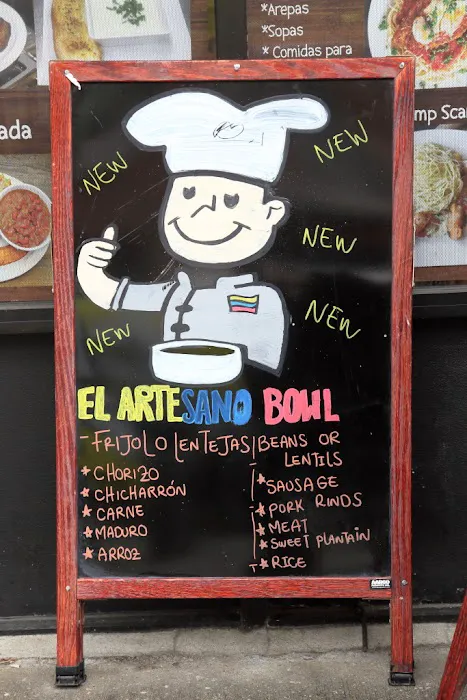 *Arepas
*Sopas
* Comidas para
ada
mp Sca
NEW
NEW
NEW
NEW
NEW
EL ARTESANO BOWL
-FRIJOL O LENTEJAS
* CHORIZO
* CHICHARRÓN
* CARNE
* MADURO
* ARROZ
BEANS OR
LENTILS
* SAUSAGE
* PORK RINDS
* MEAT
* SWEET PLANTAIN
* RICE